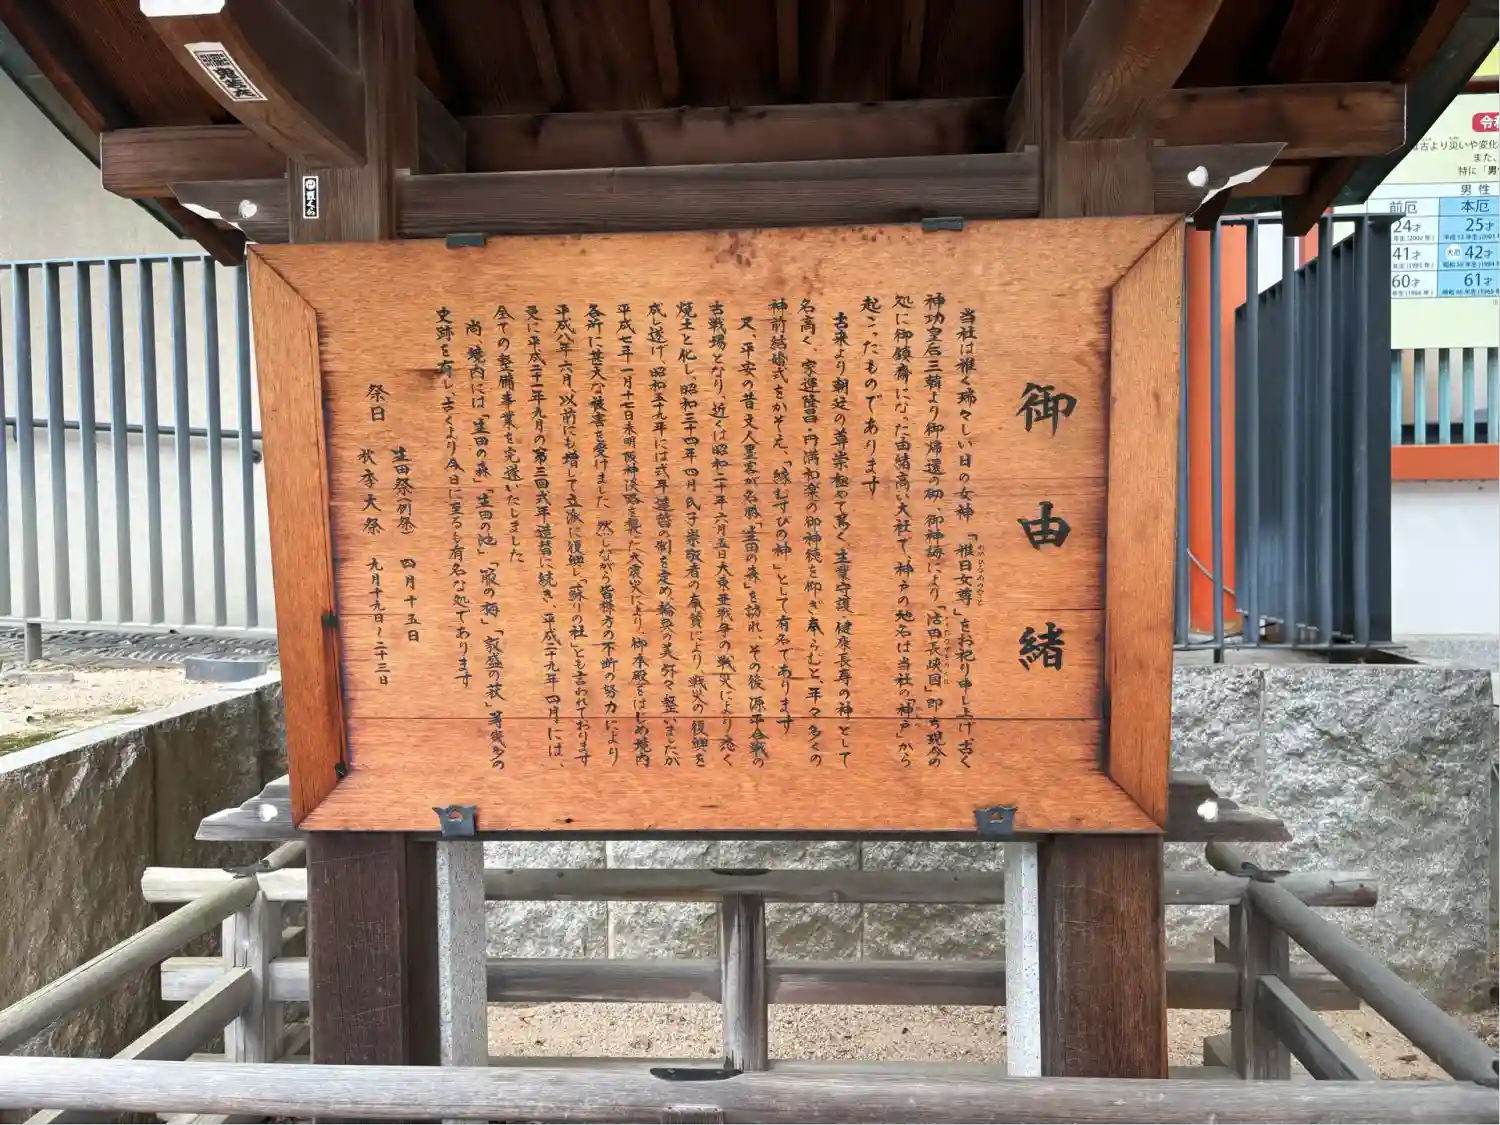 御由緒
当社は稚く瑞々しい日の女神「稚日女尊」をお祀り申し上げ古く
神功皇后三韓より御帰還の砌、御神誨により「活田長峡国」即ち現今の
処に御鎮齋になった由緒高い大社で、神戸の地名は当社の「神戸」から
起こったものであります
古来より朝廷の尊崇極めて篤く、生業守護、健康長寿の神として
名高く、家運隆昌・円満和楽の御神徳を仰ぎ奉らむと年々多くの
神前結婚式をかぞえ、「縁むすびの神」として有名であります
又、平安の昔文人墨客が名勝「生田の森」を訪れ、その後源平合戦の
古戦場となり、近くは昭和二十年六月五日大東亜戦争の戦災により悉く
焼土と化し、昭和三十四年四月氏子崇敬者の奉賛により戦災の復興を
成し遂げ、昭和五十九年には式年造替の制を定め、輪奐の美弥々整いましたが
平成七年一月十七日未明阪神淡路を襲った大震災により、御本殿をはじめ境内
各所に甚大な被害を受けました、然しながら皆様方の不断の努力により
平成八年六月、以前にも増して立派に復興し「蘇りの社」とも言われております
更に平成二十一年九月の第三回式年造替に続き、平成二十九年四月には、
全ての整備事業を完遂いたしました
尚、境内には「生田の森」「生田の池」「箙の梅」「敦盛の萩」等幾多の
史跡を有し、古くより今日に至るも有名な処であります
祭日 生田祭(例祭) 四月十五日
秋季大祭 九月十九日~二十三日
古より災いや変化
また、
特に「男
男性
前厄 本厄
24才 25才
41才 大厄 42才
60才 61才